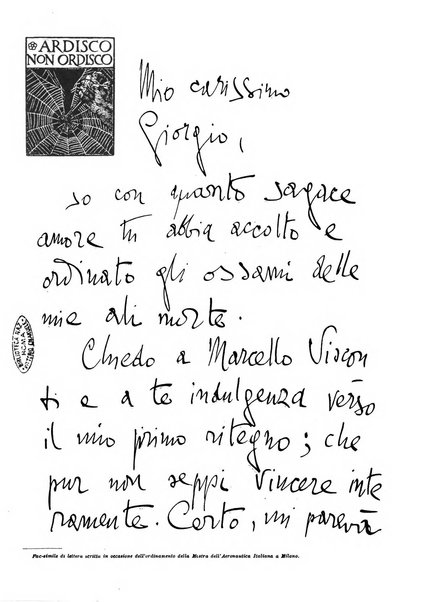 ARDISCO
NON ORDISCO
Mio carissimo
Giorgio,
so con quanto sagace
amore tu abbia accolto e
ordinato gli ossami delle
mie ali morte.
Chiedo a Marcello Viscon
ti e a te indulgenza verso
il mio primo ritegno; che
pur non seppi vincere inte
ramente. Certo, mi pareva
ROMA
Fac-simile di lettera scritta in occasione dell'ordinamento della Mostra dell'Aeronautica Italiana a Milano.